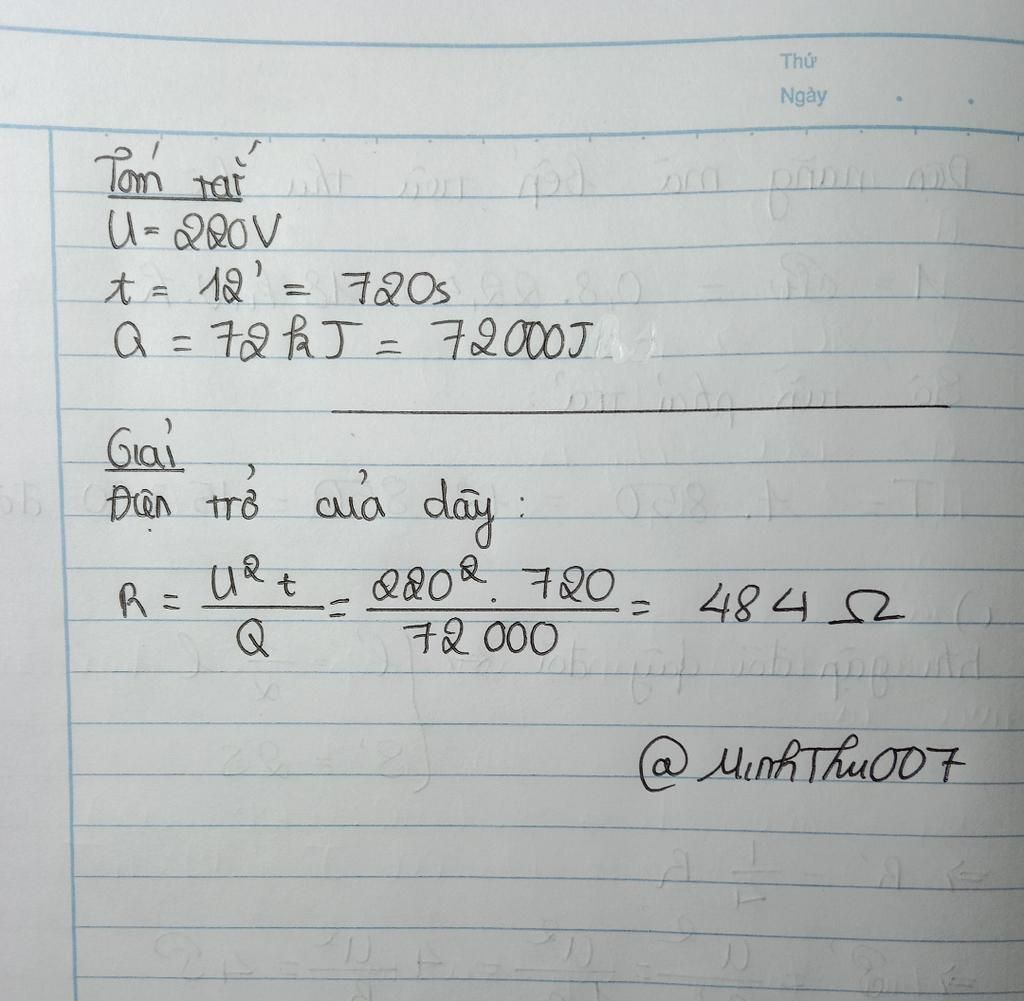 Thứ
Ngày
Tóm tắt
U = 220V
t = 12' = 720s
Q = 72kJ = 72000J
Giải
Điện trở của dây:
R = U² t / Q = 220² . 720 / 72 000 = 484 Ω
@MinhThu007